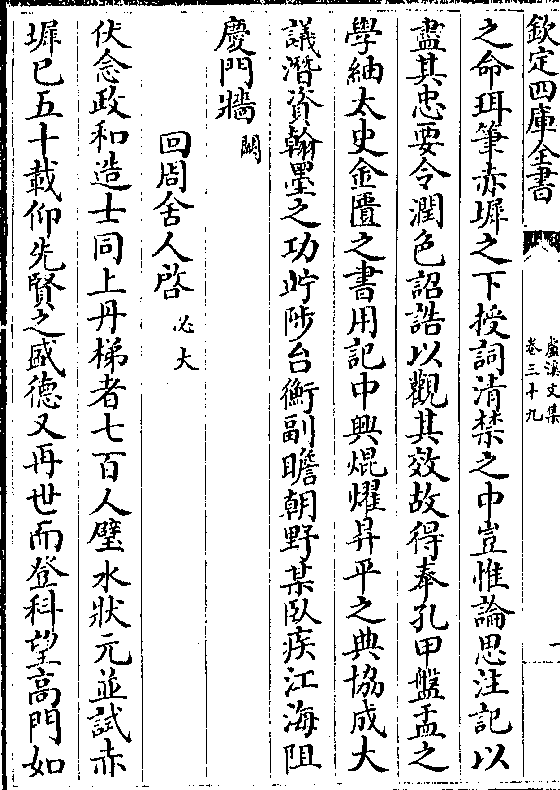 欽定四庫全書
盧溪文集
卷三十九
之命珥筆赤墀之下授詞清禁之中豈惟論思注記以
盡其忠要令潤色詔誥以觀其效故得奉孔甲盤盂之
學紬太史金匱之書用記中興焜燿昇平之典協成大
議潛資翰墨之功跂陟台衡副瞻朝野某臥疾江海阻
慶門牆闕
回周舍人啓必大
伏念政和造士同上丹梯者七百人璧水狀元並試赤
墀已五十載仰先賢之盛德又再世而登科望高門如